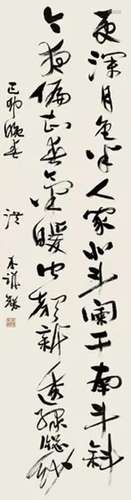 更深月色半人家北斗阑干南斗斜
今夜偏知春气暖虫声新透绿窗纱
己卯晚春